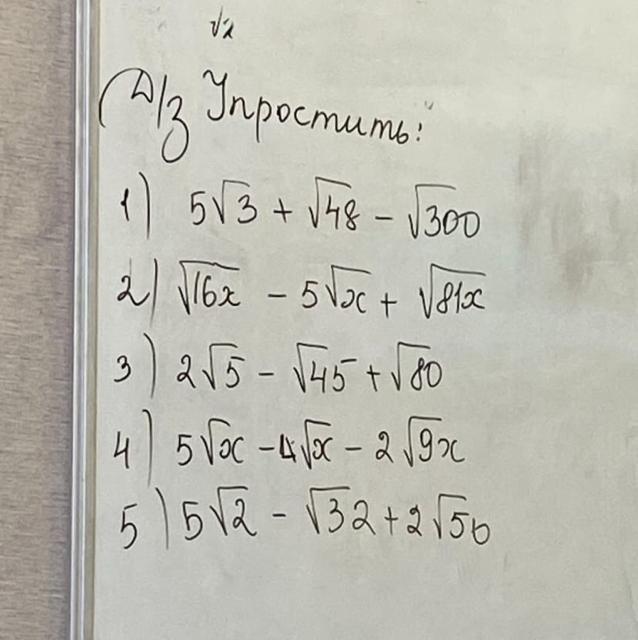 √2
Д/з Упростить:
1) 5√3 + √48 − √300
2) √16x − 5√x + √81x
3) 2√5 − √45 + √80
4) 5√x − 4√x − 2√9x
5) 5√2 − √32 + 2√50